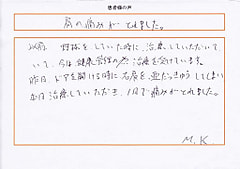 患者様の声
肩の痛みがとれました。
以前 野球をしていた時に、治療していただいて
いて、今は健康管理の治療を受けています。
昨日、ドアを開ける時に右肩を亜だっきゅうしてしまい
本日治療していただき、1回で痛みがとれました。
M.K